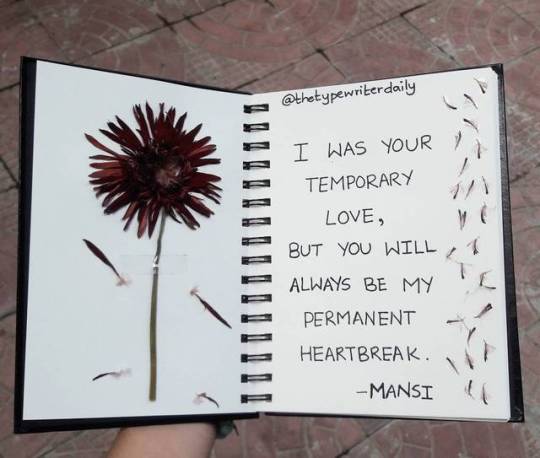 @thetypewriterdaily
I WAS YOUR
TEMPORARY
LOVE,
BUT YOU WILL
ALWAYS BE MY
PERMANENT
HEARTBREAK.
-MANSI